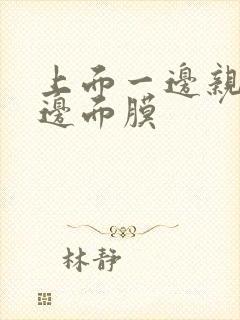 上而一邊親
邊而膜
林靜